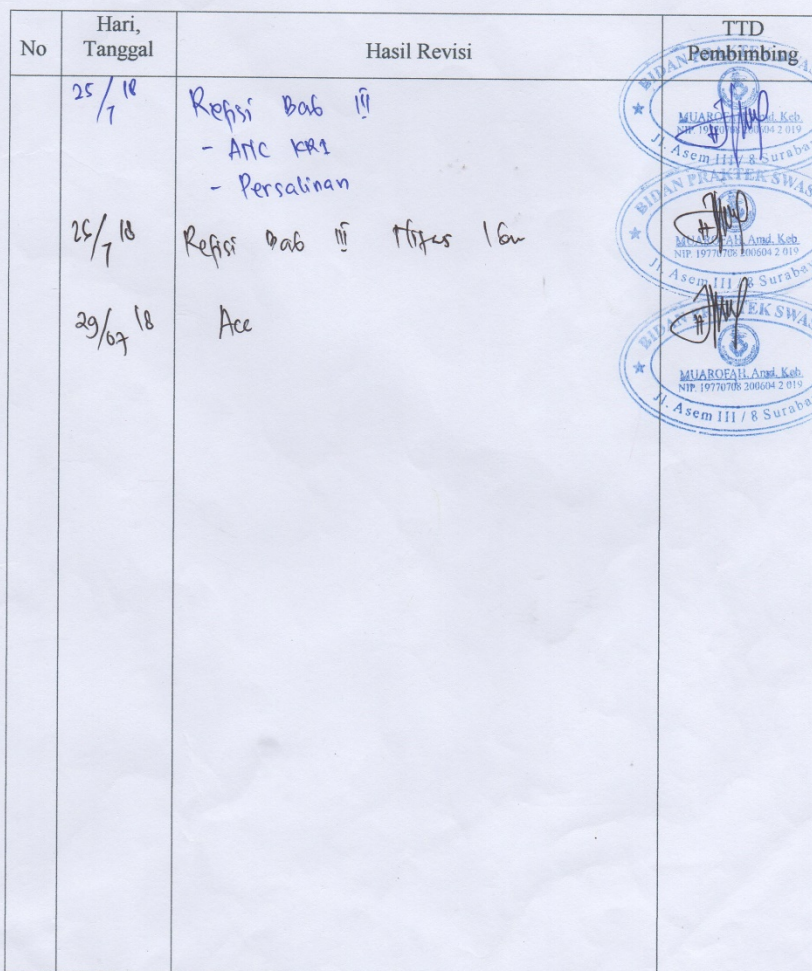 No
Hari,
Tanggal
Hasil Revisi
TTD
Pembimbing
25/7 18
Refisi Bab III
- ANC KR1
- Persalinan
BIDAN PRAKTEK SWAS
MUAROFAH, Amd. Keb
NIP. 19770708 200604 2 019
Jl. Asem III / 8 Suraba
25/7 18
Refisi Bab III Nifas Ibu
BIDAN PRAKTEK SWAS
MUAROFAH, Amd. Keb
NIP. 19770708 200604 2 019
Jl. Asem III / 8 Surabay
29/07 18
Acc
BIDAN PRAKTEK SWAS
MUAROFAH, Amd. Keb
NIP. 19770708 200604 2 019
Jl. Asem III / 8 Suraba